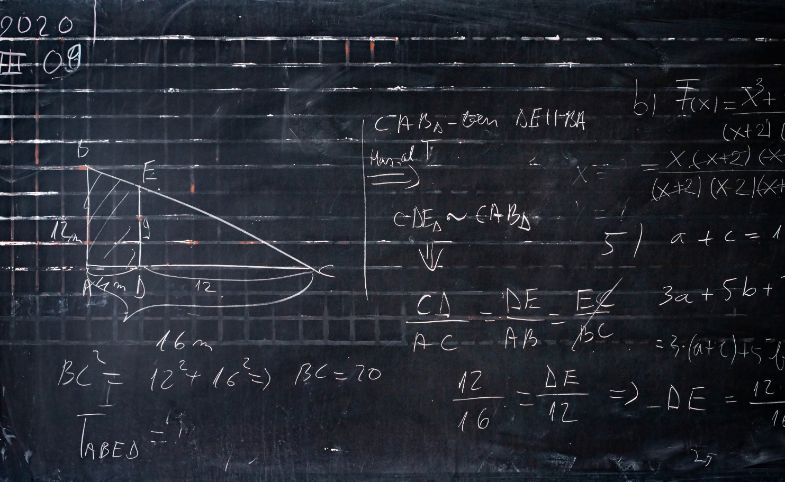 2020
III 09
B
E
12m
9
A 4m D 12 C
16m
BC² = 12² + 16² ⇒ BC = 20
T_ABED =
CAB△ - DE || BA
T.
CDE△ ~ CAB△
⇓
CD/AC = DE/AB = EC/BC
12/16 = DE/12 ⇒ DE = 12/16
b) F(x) = x³ + / (x+2)(
x = = x·(x+2)(x / (x+2)(x-2)(x+
5) a + c = 1
3a + 5b + 7
= 3·(a+c) + 5